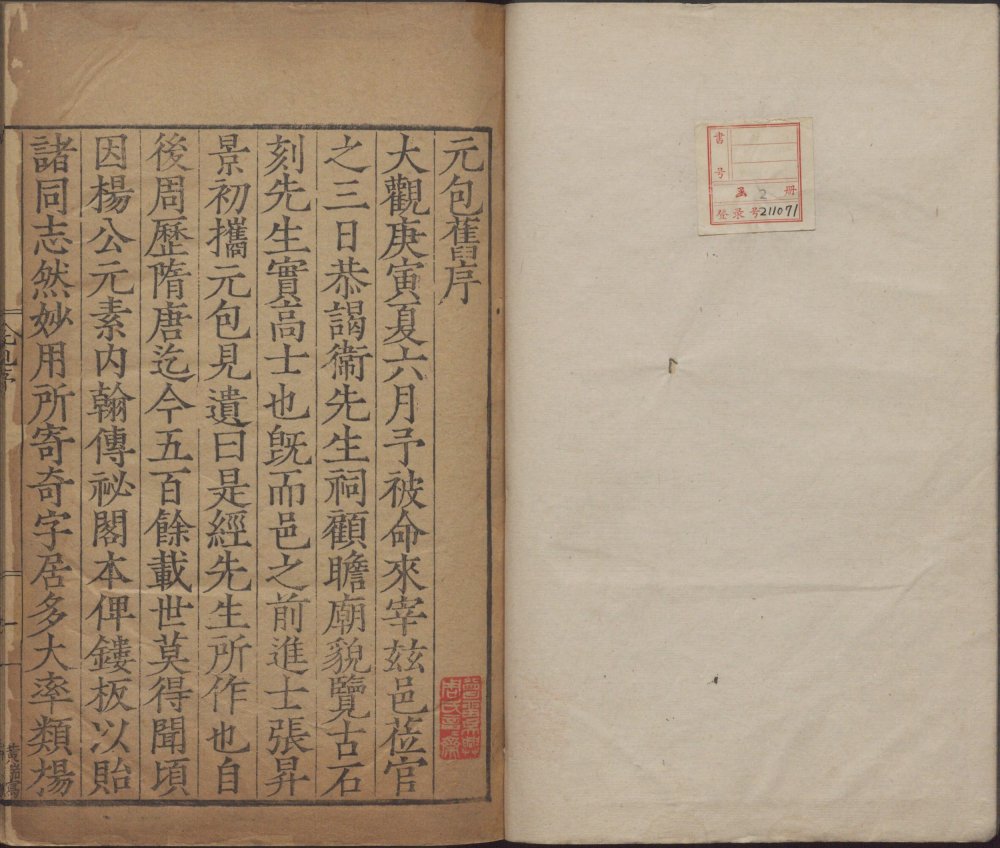 元包舊序
大觀庚寅夏六月予被命來宰兹邑莅官
之三日恭謁衛先生祠顧瞻廟貌覽古石
刻先生實高士也旣而邑之前進士張昇
景初攜元包見遺曰是經先生所作也自
後周歷隋唐迄今五百餘載世莫得聞頃
因楊公元素内翰傳祕閣本俾鏤板以貽
諸同志然妙用所寄奇字居多大率類揚
書号
函 2 册
登录号211071